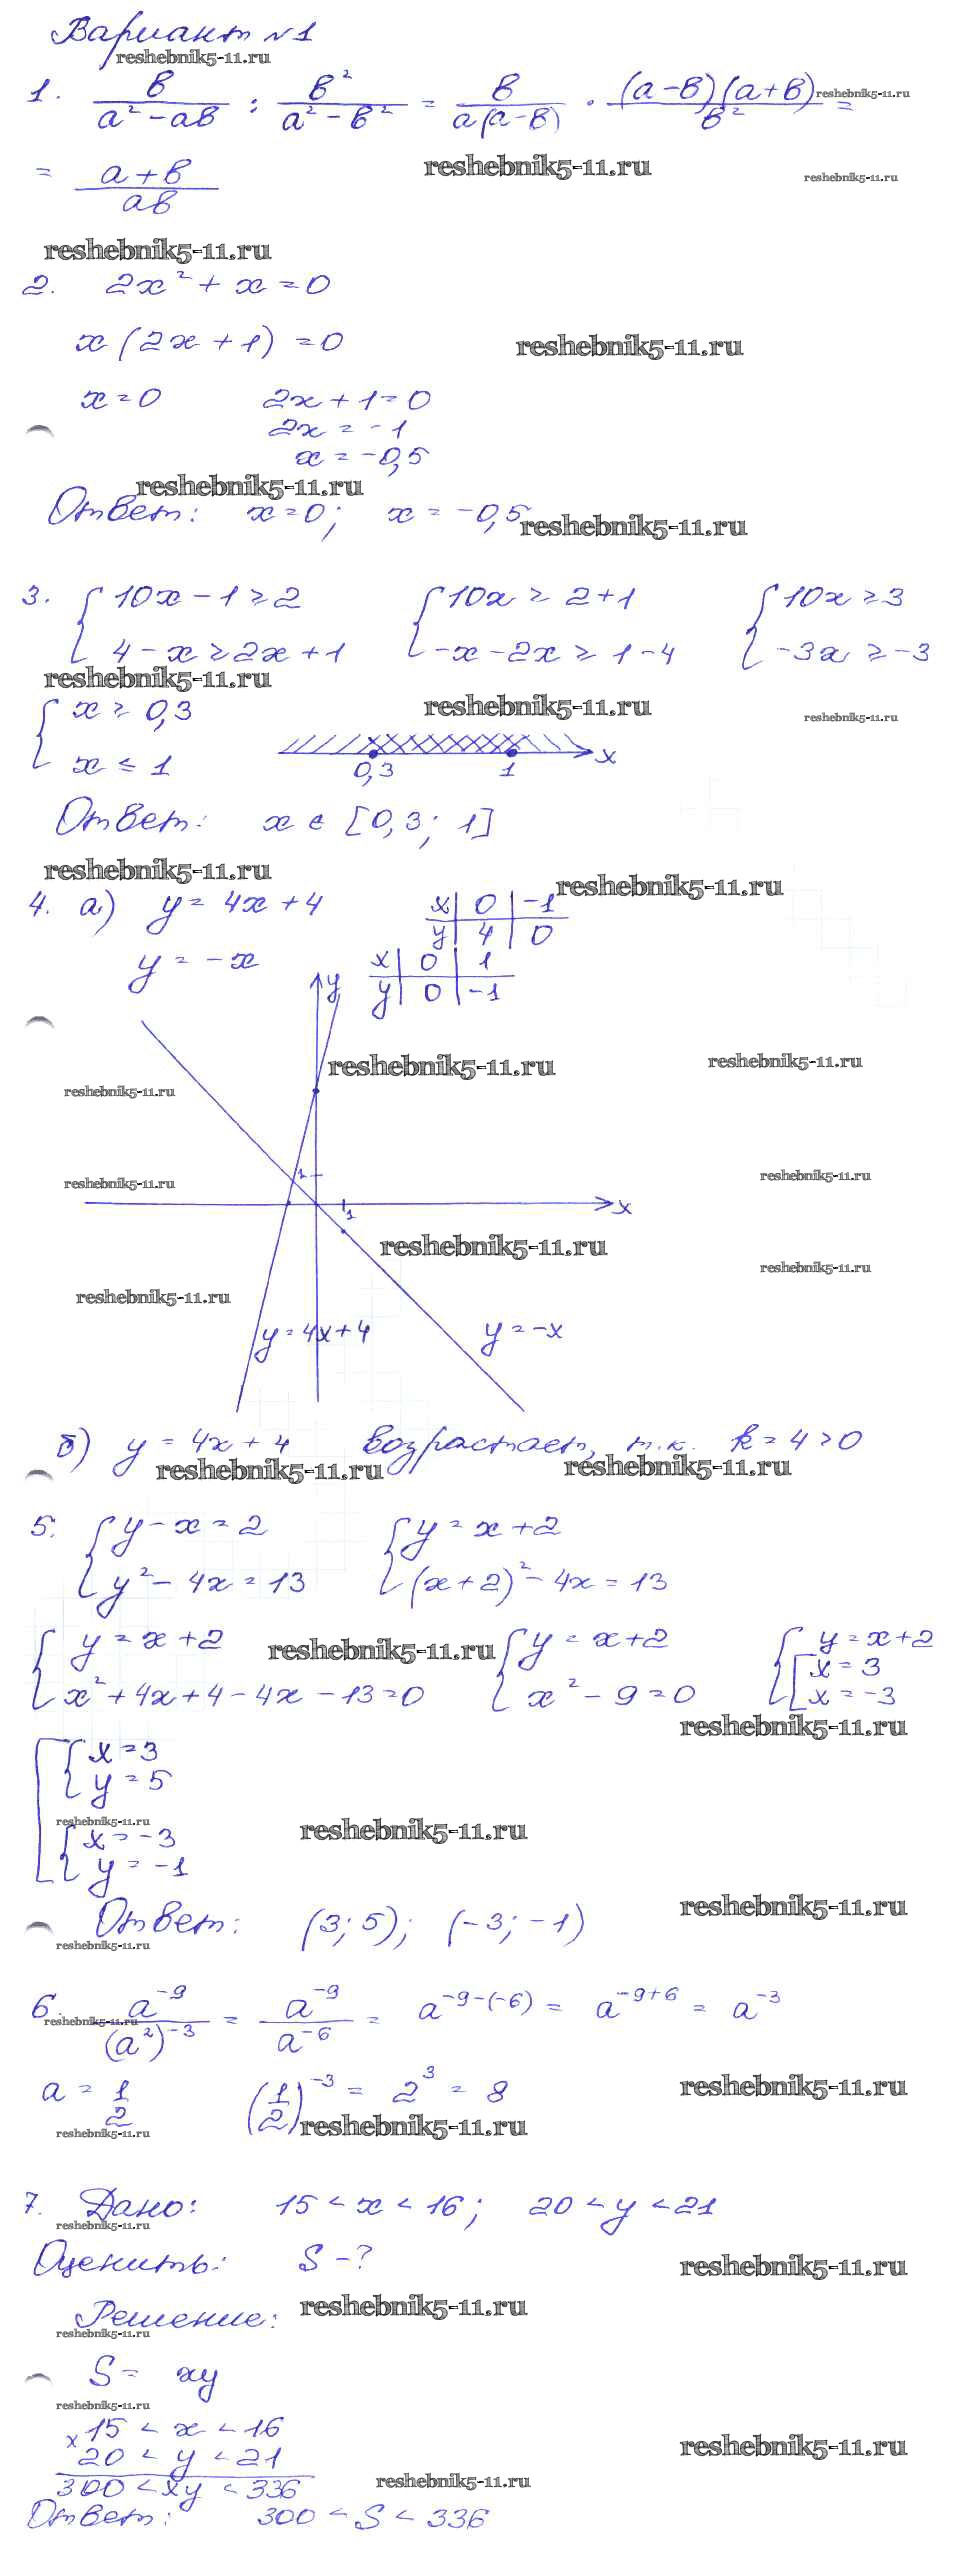 Вариант №1
reshebnik5-11.ru
1. b/(a² - ab) : b²/(a² - b²) = b/(a(a-b)) · (a-b)(a+b)/b² = reshebnik5-11.ru
= (a+b)/(ab) reshebnik5-11.ru reshebnik5-11.ru
reshebnik5-11.ru
2. 2x² + x = 0
x(2x+1) = 0 reshebnik5-11.ru
x=0 2x+1=0
2x = -1
x = -0,5
reshebnik5-11.ru
Ответ: x=0; x = -0,5 reshebnik5-11.ru
3. { 10x - 1 ≥ 2 { 10x ≥ 2+1 { 10x ≥ 3
4 - x ≥ 2x + 1 -x - 2x ≥ 1 - 4 -3x ≥ -3
reshebnik5-11.ru
{ x ≥ 0,3 reshebnik5-11.ru reshebnik5-11.ru
x ≤ 1 0,3 1 x
Ответ: x ∈ [0,3; 1]
reshebnik5-11.ru reshebnik5-11.ru
4. а) y = 4x + 4 x | 0 | -1
y | 4 | 0
y = -x x | 0 | 1
y | 0 | -1
y
reshebnik5-11.ru reshebnik5-11.ru
reshebnik5-11.ru
1 reshebnik5-11.ru
reshebnik5-11.ru
1 x
reshebnik5-11.ru
reshebnik5-11.ru
reshebnik5-11.ru
y = 4x+4 y = -x
б) y = 4x + 4 возрастает, т.к. k = 4 > 0
reshebnik5-11.ru reshebnik5-11.ru
5. { y - x = 2 { y = x + 2
y² - 4x = 13 (x+2)² - 4x = 13
{ y = x + 2 reshebnik5-11.ru { y = x+2 { y = x+2
x² + 4x + 4 - 4x - 13 = 0 x² - 9 = 0 [ x = 3
x = -3
reshebnik5-11.ru
[ { x = 3
y = 5
reshebnik5-11.ru reshebnik5-11.ru
{ x = -3
y = -1
Ответ: (3; 5); (-3; -1) reshebnik5-11.ru
reshebnik5-11.ru
6. a⁻⁹/(a²)⁻³ = a⁻⁹/a⁻⁶ = a^(-9-(-6)) = a^(-9+6) = a⁻³
reshebnik5-11.ru
a = 1/2 (1/2)⁻³ = 2³ = 8 reshebnik5-11.ru
reshebnik5-11.ru reshebnik5-11.ru
7. Дано: 15 < x < 16; 20 < y < 21
reshebnik5-11.ru
Оценить: S - ? reshebnik5-11.ru
Решение: reshebnik5-11.ru
reshebnik5-11.ru
S = xy
reshebnik5-11.ru
x 15 < x < 16
20 < y < 21 reshebnik5-11.ru
300 < xy < 336 reshebnik5-11.ru
Ответ: 300 < S < 336